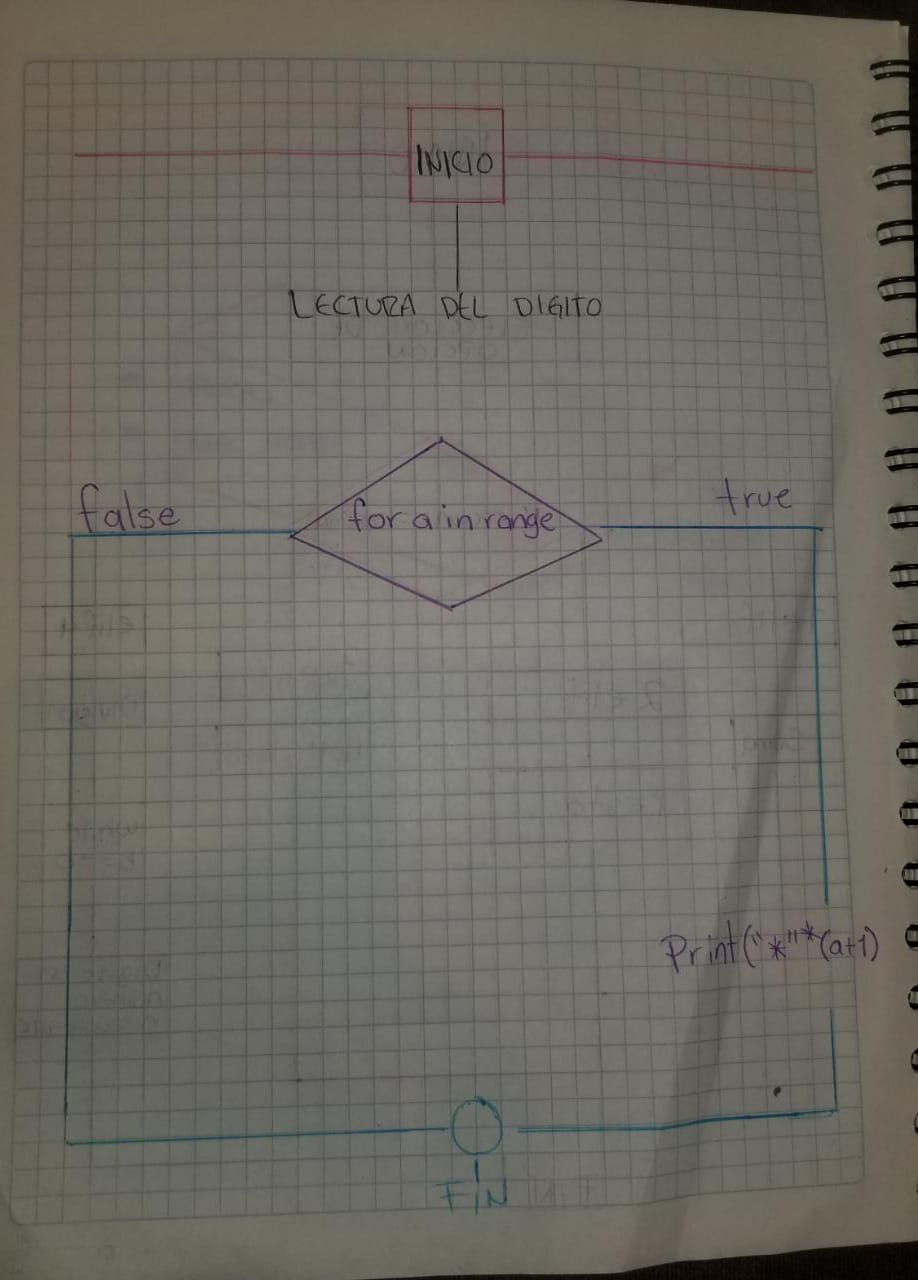 INICIO
LECTURA DEL DIGITO
false
for a in range
true
Print("*"*(a+1)
FIN